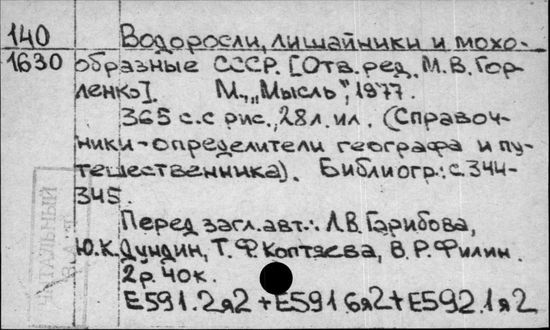 140 Водоросли, лишайники и мохо-
1630 образные СССР. [Отв. ред. М.В. Гор-
ленко]. М., „Мысль", 1977.
365 с. с рис., 28 л. ил. (Справоч-
ники-определители географа и пу-
тешественника). Библиогр.: с. 344-
345.
Перед загл. авт.: Л.В. Гарибова,
Ю.К. Дундин, Т.Ф. Коптяева, В.Р. Филин.
2р. 40к.
Е591.2я2 + Е591.6я2 + Е592.1я2
ЧИТАЛЬНЫЙ
ЗАЛ